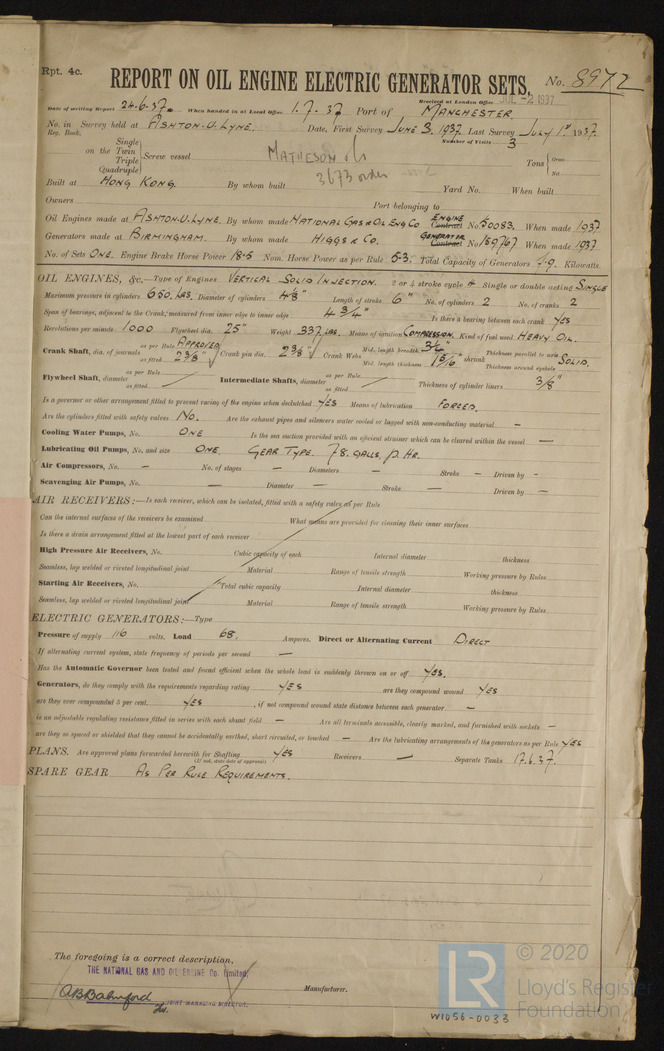 Rpt. 4c.
REPORT ON OIL ENGINE ELECTRIC GENERATOR SETS. No. 8972
Received at London Office JUL -2 1937
Date of writing Report 24.6.37. When handed in at Local Office 1.7.37 Port of MANCHESTER
No. in Reg. Book. Survey held at ASHTON-U-LYNE. Date, First Survey JUNE 3, 1937. Last Survey JULY 1st 1937.
Number of Visits 3
on the Single Twin Triple Quadruple Screw vessel MATHESON
3673 order
Tons Gross Net
Built at HONG KONG. By whom built Yard No. When built
Owners Port belonging to
Oil Engines made at ASHTON-U-LYNE. By whom made NATIONAL GAS & OIL ENG Co ENGINE Contract No. 50083. When made 1937
Generators made at BIRMINGHAM. By whom made HIGGS & CO. GENERATOR Contract No. 159767 When made 1937
No. of Sets ONE. Engine Brake Horse Power 18.5 Nom. Horse Power as per Rule 5.3. Total Capacity of Generators 7.9. Kilowatts.
OIL ENGINES, &c.—Type of Engines VERTICAL SOLID INJECTION. 2 or 4 stroke cycle 4 Single or double acting SINGLE
Maximum pressure in cylinders 650 LBS. Diameter of cylinders 4⅛" Length of stroke 6" No. of cylinders 2 No. of cranks 2
Span of bearings, adjacent to the Crank, measured from inner edge to inner edge 4 3/4" Is there a bearing between each crank YES
Revolutions per minute 1000 Flywheel dia. 25" Weight 337 LBS. Means of ignition COMPRESSION. Kind of fuel used HEAVY OIL.
Crank Shaft, dia. of journals as per Rule APPROVED as fitted 2 3/8" Crank pin dia. 2 3/8" Crank Webs Mid. length breadth 3¼" Mid. length thickness 15/16" shrunk Thickness parallel to axis Thickness around eyehole SOLID.
Flywheel Shaft, diameter as per Rule as fitted Intermediate Shafts, diameter as per Rule as fitted Thickness of cylinder liners 3/8"
Is a governor or other arrangement fitted to prevent racing of the engine when declutched YES Means of lubrication FORCED.
Are the cylinders fitted with safety valves NO. Are the exhaust pipes and silencers water cooled or lagged with non-conducting material —
Cooling Water Pumps, No. ONE Is the sea suction provided with an efficient strainer which can be cleared within the vessel —
Lubricating Oil Pumps, No. and size ONE. GEAR TYPE. 78. GALLS. P. HR.
Air Compressors, No. — No. of stages — Diameters — Stroke — Driven by —
Scavenging Air Pumps, No. — Diameter — Stroke — Driven by —
AIR RECEIVERS:—Is each receiver, which can be isolated, fitted with a safety valve as per Rule
Can the internal surfaces of the receivers be examined What means are provided for cleaning their inner surfaces
Is there a drain arrangement fitted at the lowest part of each receiver
High Pressure Air Receivers, No. Cubic capacity of each Internal diameter thickness
Seamless, lap welded or riveted longitudinal joint Material Range of tensile strength Working pressure by Rules
Starting Air Receivers, No. Total cubic capacity Internal diameter thickness
Seamless, lap welded or riveted longitudinal joint Material Range of tensile strength Working pressure by Rules
ELECTRIC GENERATORS:—Type
Pressure of supply 116 volts. Load 68. Amperes. Direct or Alternating Current DIRECT
If alternating current system, state frequency of periods per second —
Has the Automatic Governor been tested and found efficient when the whole load is suddenly thrown on or off YES.
Generators, do they comply with the requirements regarding rating YES are they compound wound YES
are they over compounded 5 per cent. YES, if not compound wound state distance between each generator —
is an adjustable regulating resistance fitted in series with each shunt field — Are all terminals accessible, clearly marked, and furnished with sockets —
are they so spaced or shielded that they cannot be accidentally earthed, short circuited, or touched — Are the lubricating arrangements of the generators as per Rule YES
PLANS. Are approved plans forwarded herewith for Shafting YES Receivers — Separate Tanks 17.6.37.
(If not, state date of approval)
SPARE GEAR AS PER RULE REQUIREMENTS.
The foregoing is a correct description,
THE NATIONAL GAS AND OIL ENGINE Co. Limited.
JOINT MANAGING DIRECTOR. Manufacturer.
W1056-0033
LR
© 2020
Lloyd's Register
Foundation